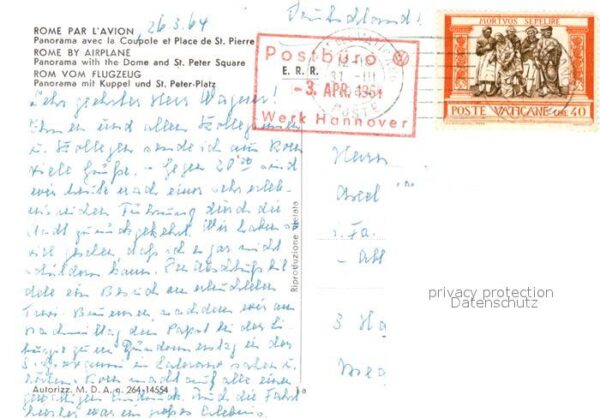 ROME PAR L'AVION
Panorama avec la Coupole et Place de St. Pierre
ROME BY AIRPLANE
Panorama with the Dome and St. Peter Square
ROM VOM FLUGZEUG
Panorama mit Kuppel und St. Peter-Platz
26.3.64
Deutschland!
Postbüro
E. R. R.
-3. APR. 1964
Werk Hannover
MORTVOS SEPELIRE
POSTE VATICANE LIRE 40
Sehr geehrter Herr Wagner!
Ihnen und allen Kolleginnen
u. Kollegen sende ich aus Rom
viele Grüße. Gegen 20⁰⁰ sind
wir heute nach einer sehr erleb-
nisreichen Führung durch die
Stadt zurückgekehrt. Wir haben so
viel gesehen, daß ich es gar nicht
schildern kann. Den Abschluß bil
dete ein Besuch am erleuchteten
Trevi Brunnen, nachdem wir am
Nachmittag den Papst bei der Li
turgie zum Gründonnerstag in der
S. in Laterano sahen u.
hörten. Rom macht auf alle einen
gewaltigen Eindruck. Auch die Fahrt
hierher war ein großes Erlebnis.
Herrn
i. Fa.
3 Ha
Riproduzione vietata
privacy protection
Datenschutz
Autorizz. M. D. A. n. 264-14554